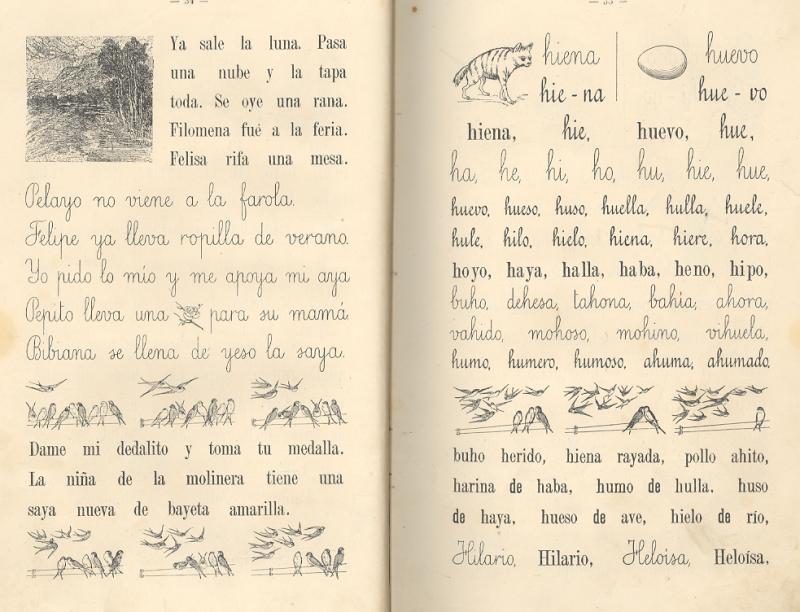 Ya sale la luna. Pasa
una nube y la tapa
toda. Se oye una rana.
Filomena fué a la feria.
Felisa rifa una mesa.
Pelayo no viene a la farola.
Felipe ya lleva ropilla de verano.
Yo pido lo mío y me apoya mi aya
Pepito lleva una para su mamá
Bibiana se llena de yeso la saya.
Dame mi dedalito y toma tu medalla.
La niña de la molinera tiene una
saya nueva de bayeta amarilla.
hiena huevo
hie - na hue - vo
hiena, hie, huevo, hue,
ha, he, hi, ho, hu, hie, hue,
huevo, hueso, huso, huella, hulla, huele,
hule, hilo, hielo, hiena, hiere, hora,
hoyo, haya, halla, haba, heno, hipo,
buho, dehesa, tahona, bahía, ahora,
vahido, mohoso, mohino, vihuela,
humo, humero, humoso, ahuma, ahumado.
buho herido, hiena rayada, pollo ahito,
harina de haba, humo de hulla. huso
de haya, hueso de ave, hielo de río,
Hilario, Hilario, Heloisa, Heloísa,